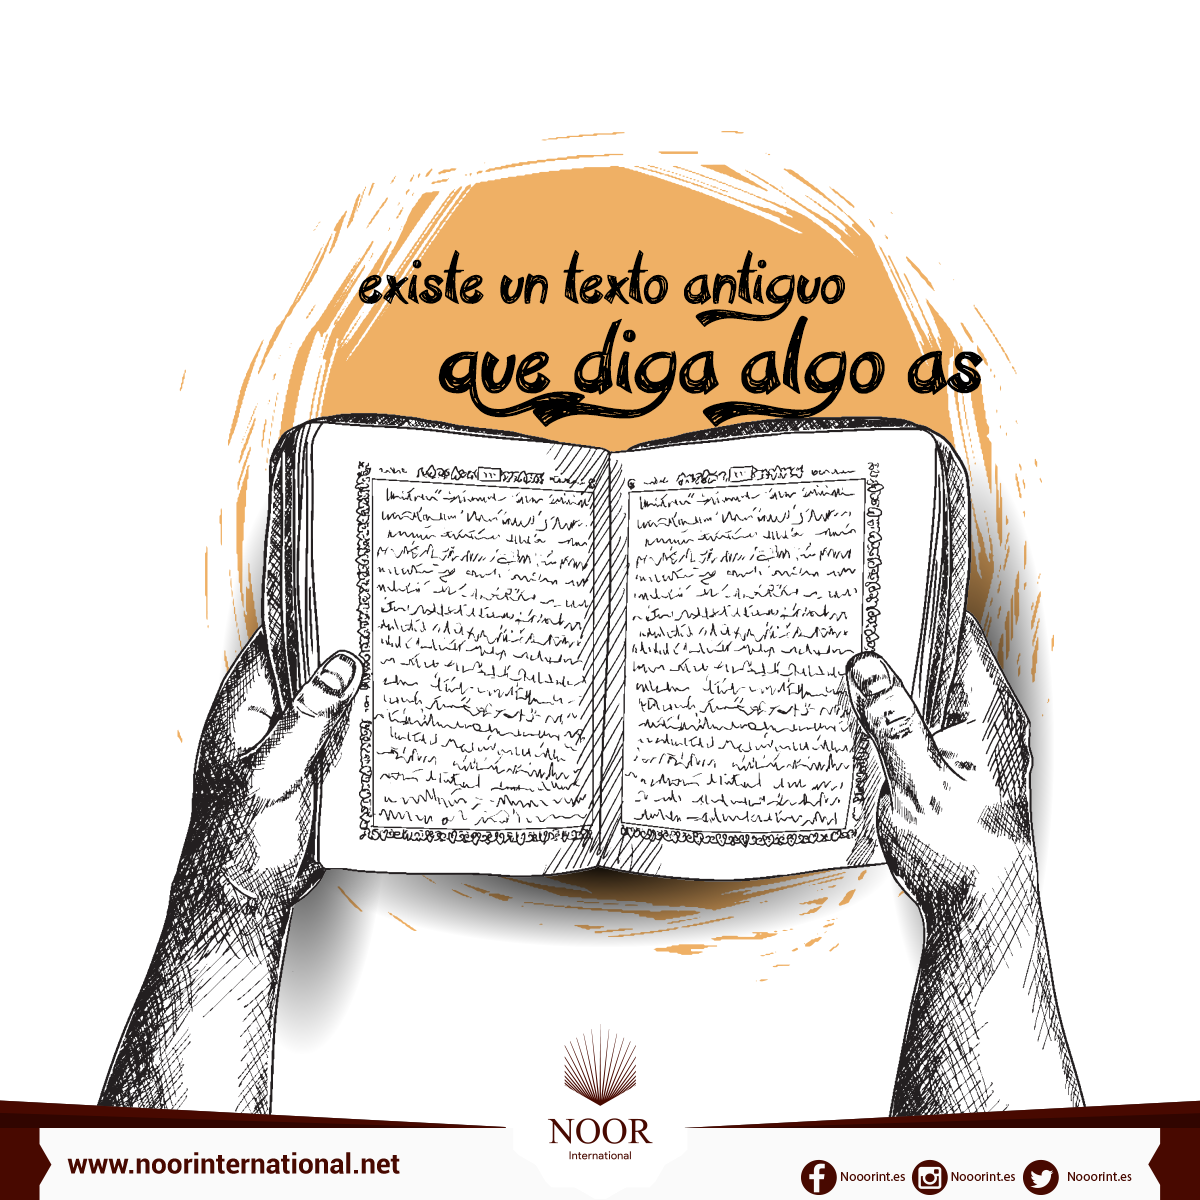 existe un texto antiguo
que diga algo as
NOOR
International
www.noorinternational.net
Nooorint.es
Nooorint.es
Nooorint.es